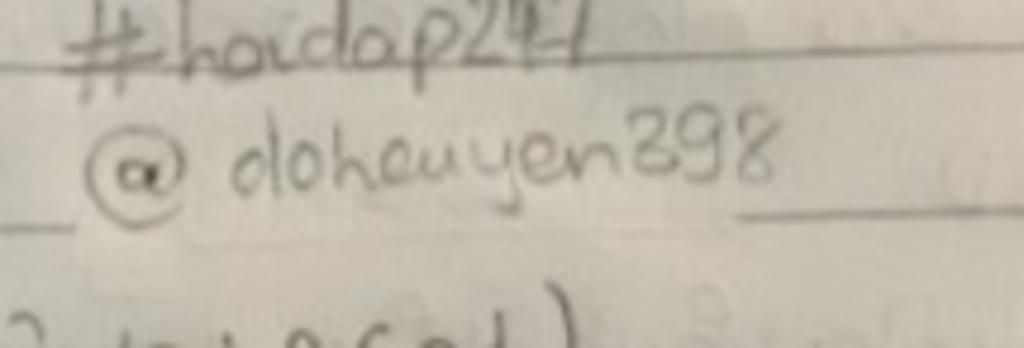 #hoidap247
@doheuyen398